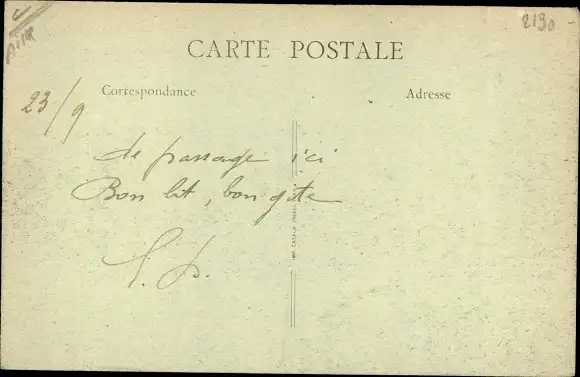 2190
CARTE POSTALE
Correspondance
Adresse
23/9
de passage ici
Bon lit, bon gîte